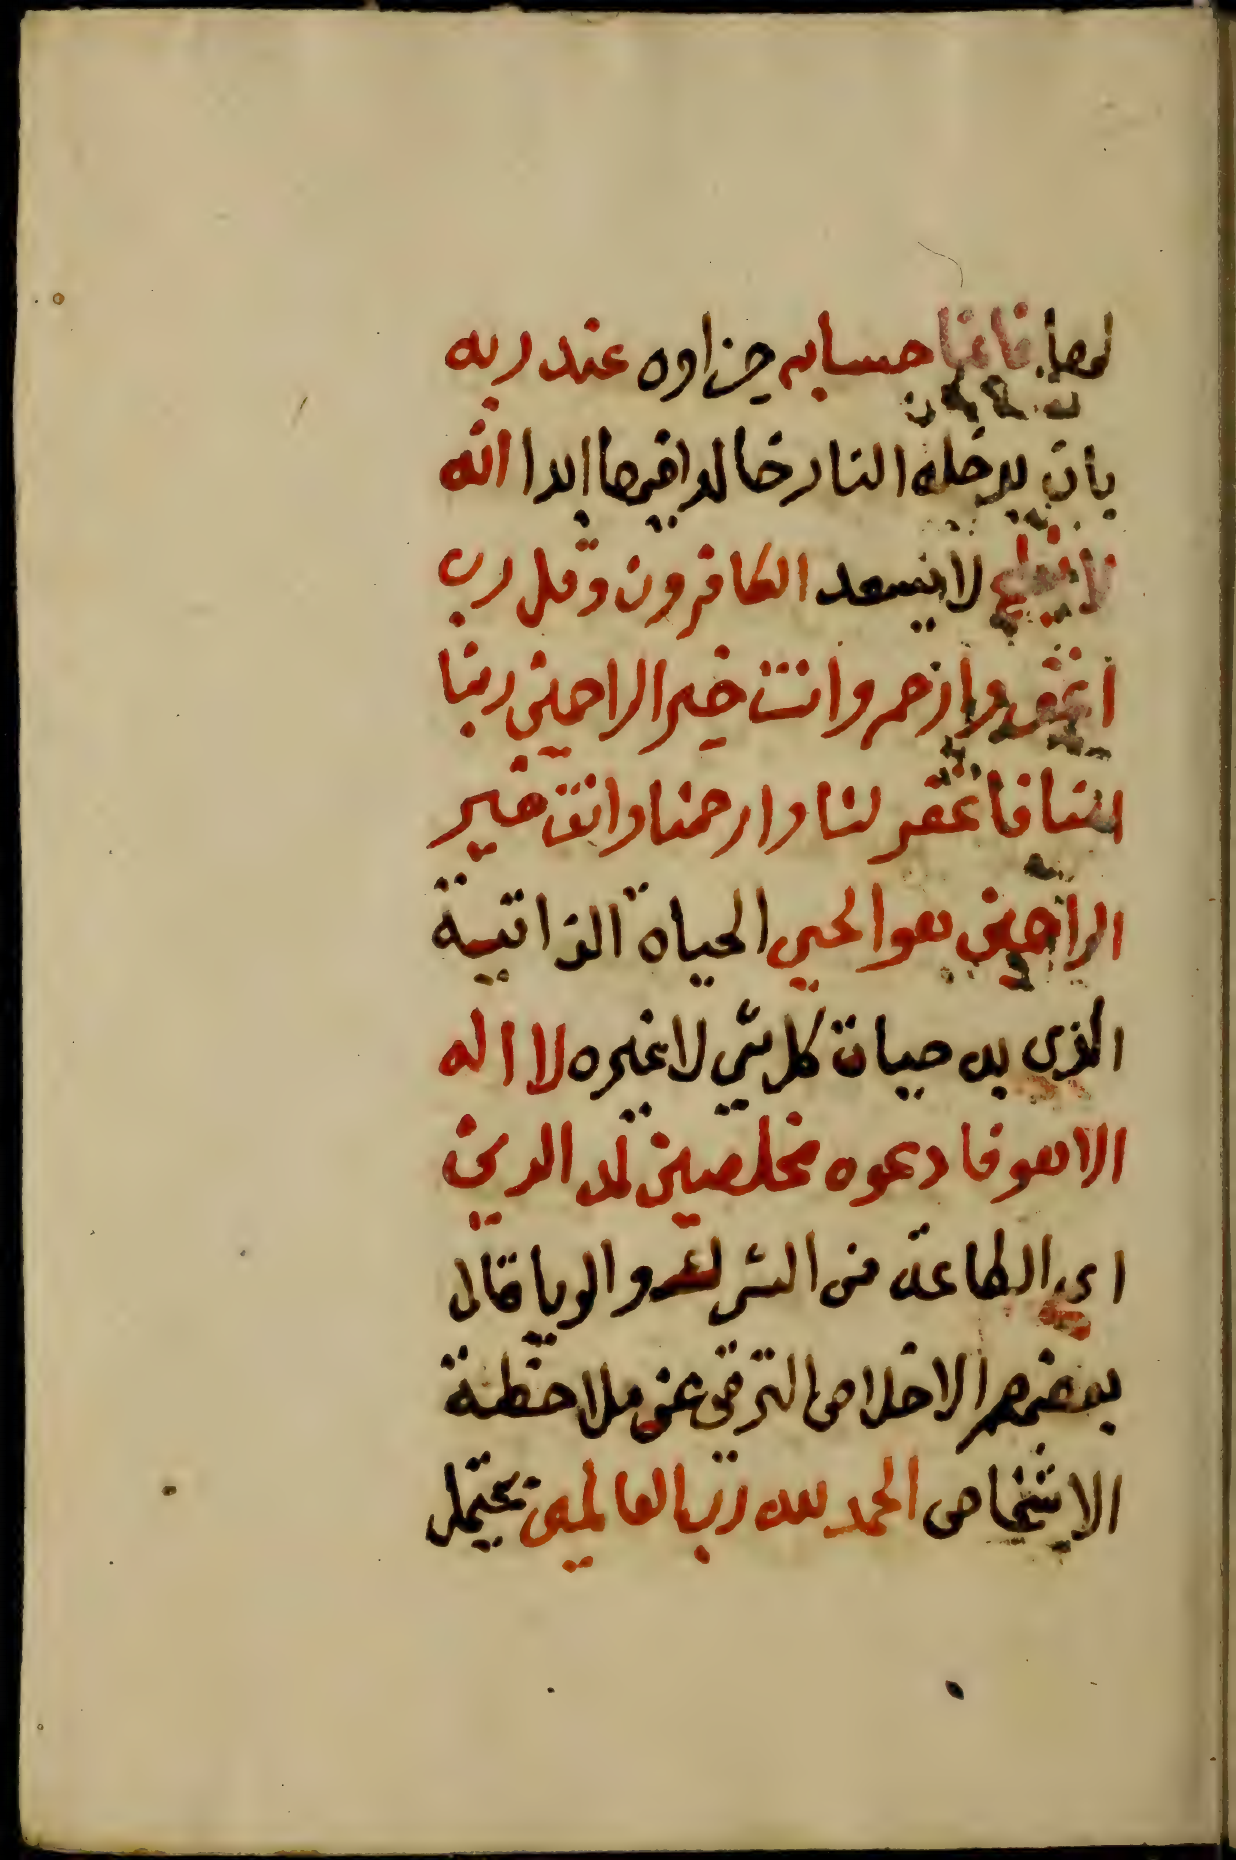 لها فانما حسابه جزاوه عند ربه
بان يدخله النار خالدا فيها ابدا انه
لا يفلح لا يسعد الكافرون وقل رب
اغفر وارحم وانت خير الراحمين ربنا
امنا فاغفر لنا وارحمنا وانت خير
الراحمين هو الحي الحياة الذاتية
الذي به حياة كل شي لا غيره لا اله
الا هو فادعوه مخلصين له الدين
اي الطاعة من الشرك والريا قال
بعضهم الاخلاص الترقي عن ملاحظة
الاشخاص الحمد لله رب العالمين يحتمل